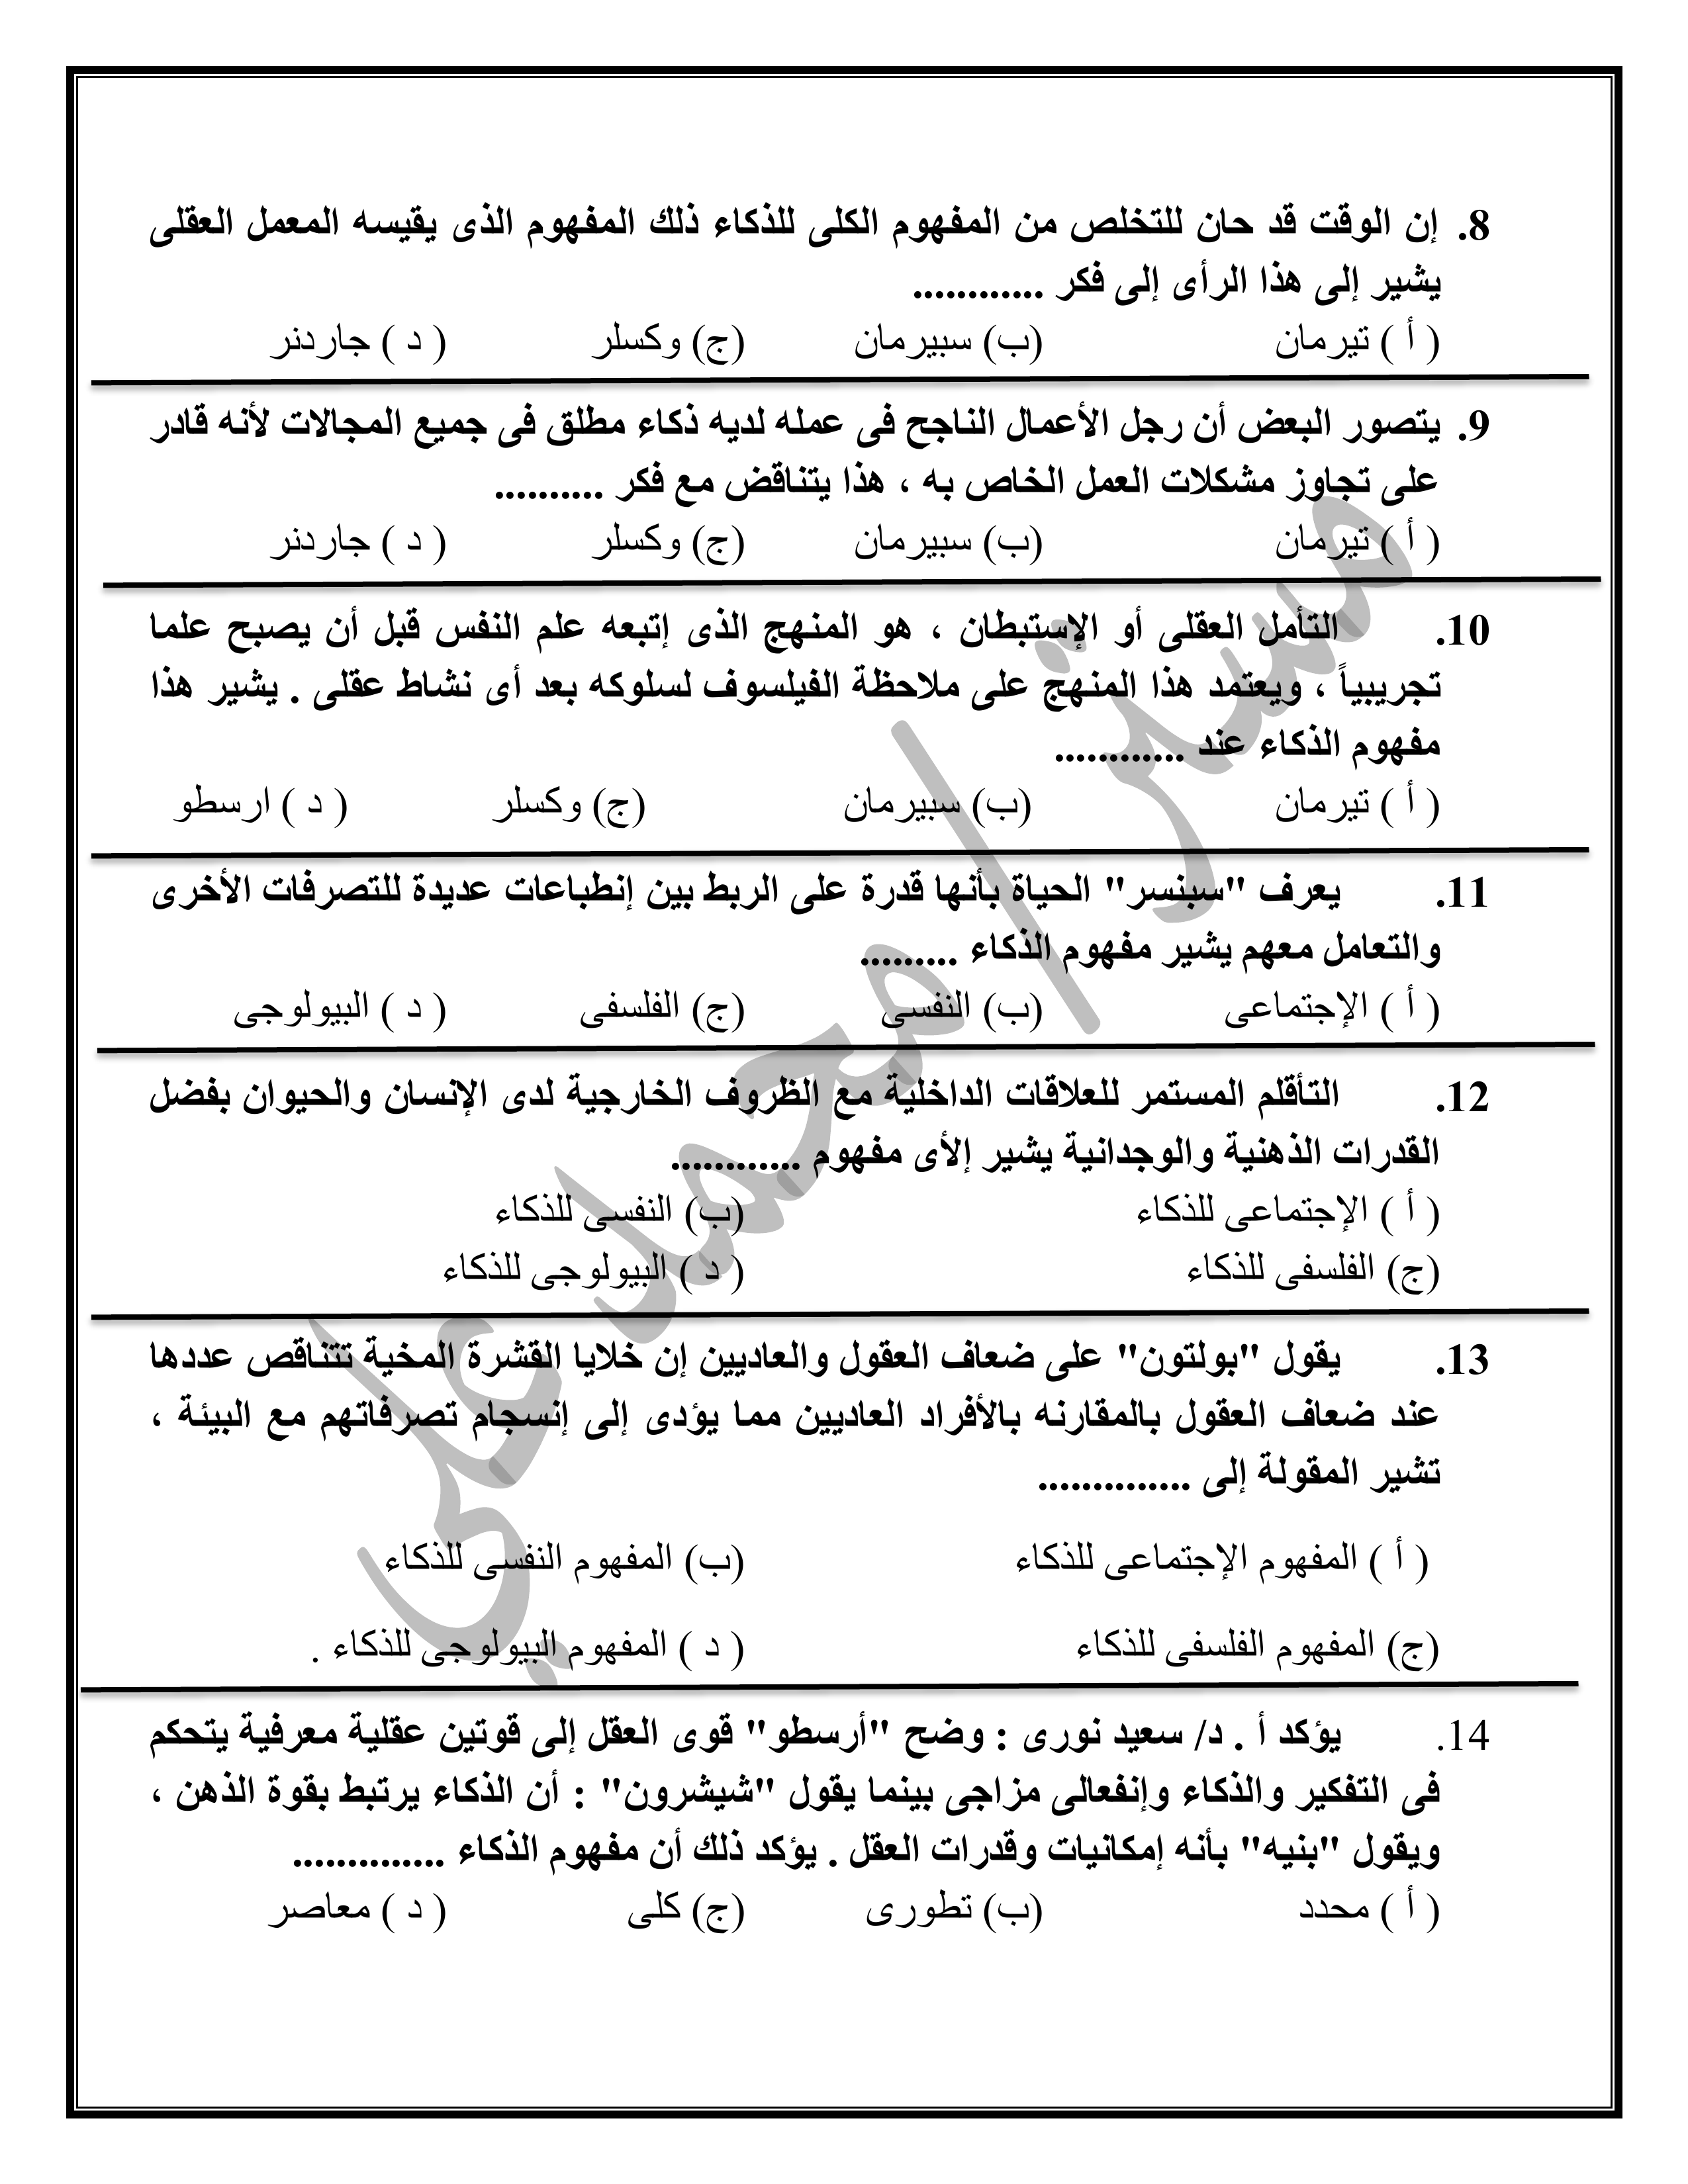 8. إن الوقت قد حان للتخلص من المفهوم الكلى للذكاء ذلك المفهوم الذى يقيسه المعمل العقلى
يشير إلى هذا الرأى إلى فكر ............
( أ ) تيرمان (ب) سبيرمان (ج) وكسلر ( د ) جاردنر
9. يتصور البعض أن رجل الأعمال الناجح فى عمله لديه ذكاء مطلق فى جميع المجالات لأنه قادر
على تجاوز مشكلات العمل الخاص به ، هذا يتناقض مع فكر ..........
( أ ) تيرمان (ب) سبيرمان (ج) وكسلر ( د ) جاردنر
10. التأمل العقلى أو الإستبطان ، هو المنهج الذى إتبعه علم النفس قبل أن يصبح علما
تجريبياً ، ويعتمد هذا المنهج على ملاحظة الفيلسوف لسلوكه بعد أى نشاط عقلى . يشير هذا
مفهوم الذكاء عند ............
( أ ) تيرمان (ب) سبيرمان (ج) وكسلر ( د ) ارسطو
11. يعرف "سبنسر" الحياة بأنها قدرة على الربط بين إنطباعات عديدة للتصرفات الأخرى
والتعامل معهم يشير مفهوم الذكاء .........
( أ ) الإجتماعى (ب) النفسى (ج) الفلسفى ( د ) البيولوجى
12. التأقلم المستمر للعلاقات الداخلية مع الظروف الخارجية لدى الإنسان والحيوان بفضل
القدرات الذهنية والوجدانية يشير إلأى مفهوم ............
( أ ) الإجتماعى للذكاء (ب) النفسى للذكاء
(ج) الفلسفى للذكاء ( د ) البيولوجى للذكاء
13. يقول "بولتون" على ضعاف العقول والعاديين إن خلايا القشرة المخية تتناقص عددها
عند ضعاف العقول بالمقارنه بالأفراد العاديين مما يؤدى إلى إنسجام تصرفاتهم مع البيئة ،
تشير المقولة إلى ..............
( أ ) المفهوم الإجتماعى للذكاء (ب) المفهوم النفسى للذكاء
(ج) المفهوم الفلسفى للذكاء ( د ) المفهوم البيولوجى للذكاء .
14. يؤكد أ . د/ سعيد نورى : وضح "أرسطو" قوى العقل إلى قوتين عقلية معرفية يتحكم
فى التفكير والذكاء وإنفعالى مزاجى بينما يقول "شيشرون" : أن الذكاء يرتبط بقوة الذهن ،
ويقول "بنيه" بأنه إمكانيات وقدرات العقل . يؤكد ذلك أن مفهوم الذكاء ..............
( أ ) محدد (ب) تطورى (ج) كلى ( د ) معاصر
مستر / محمد علي